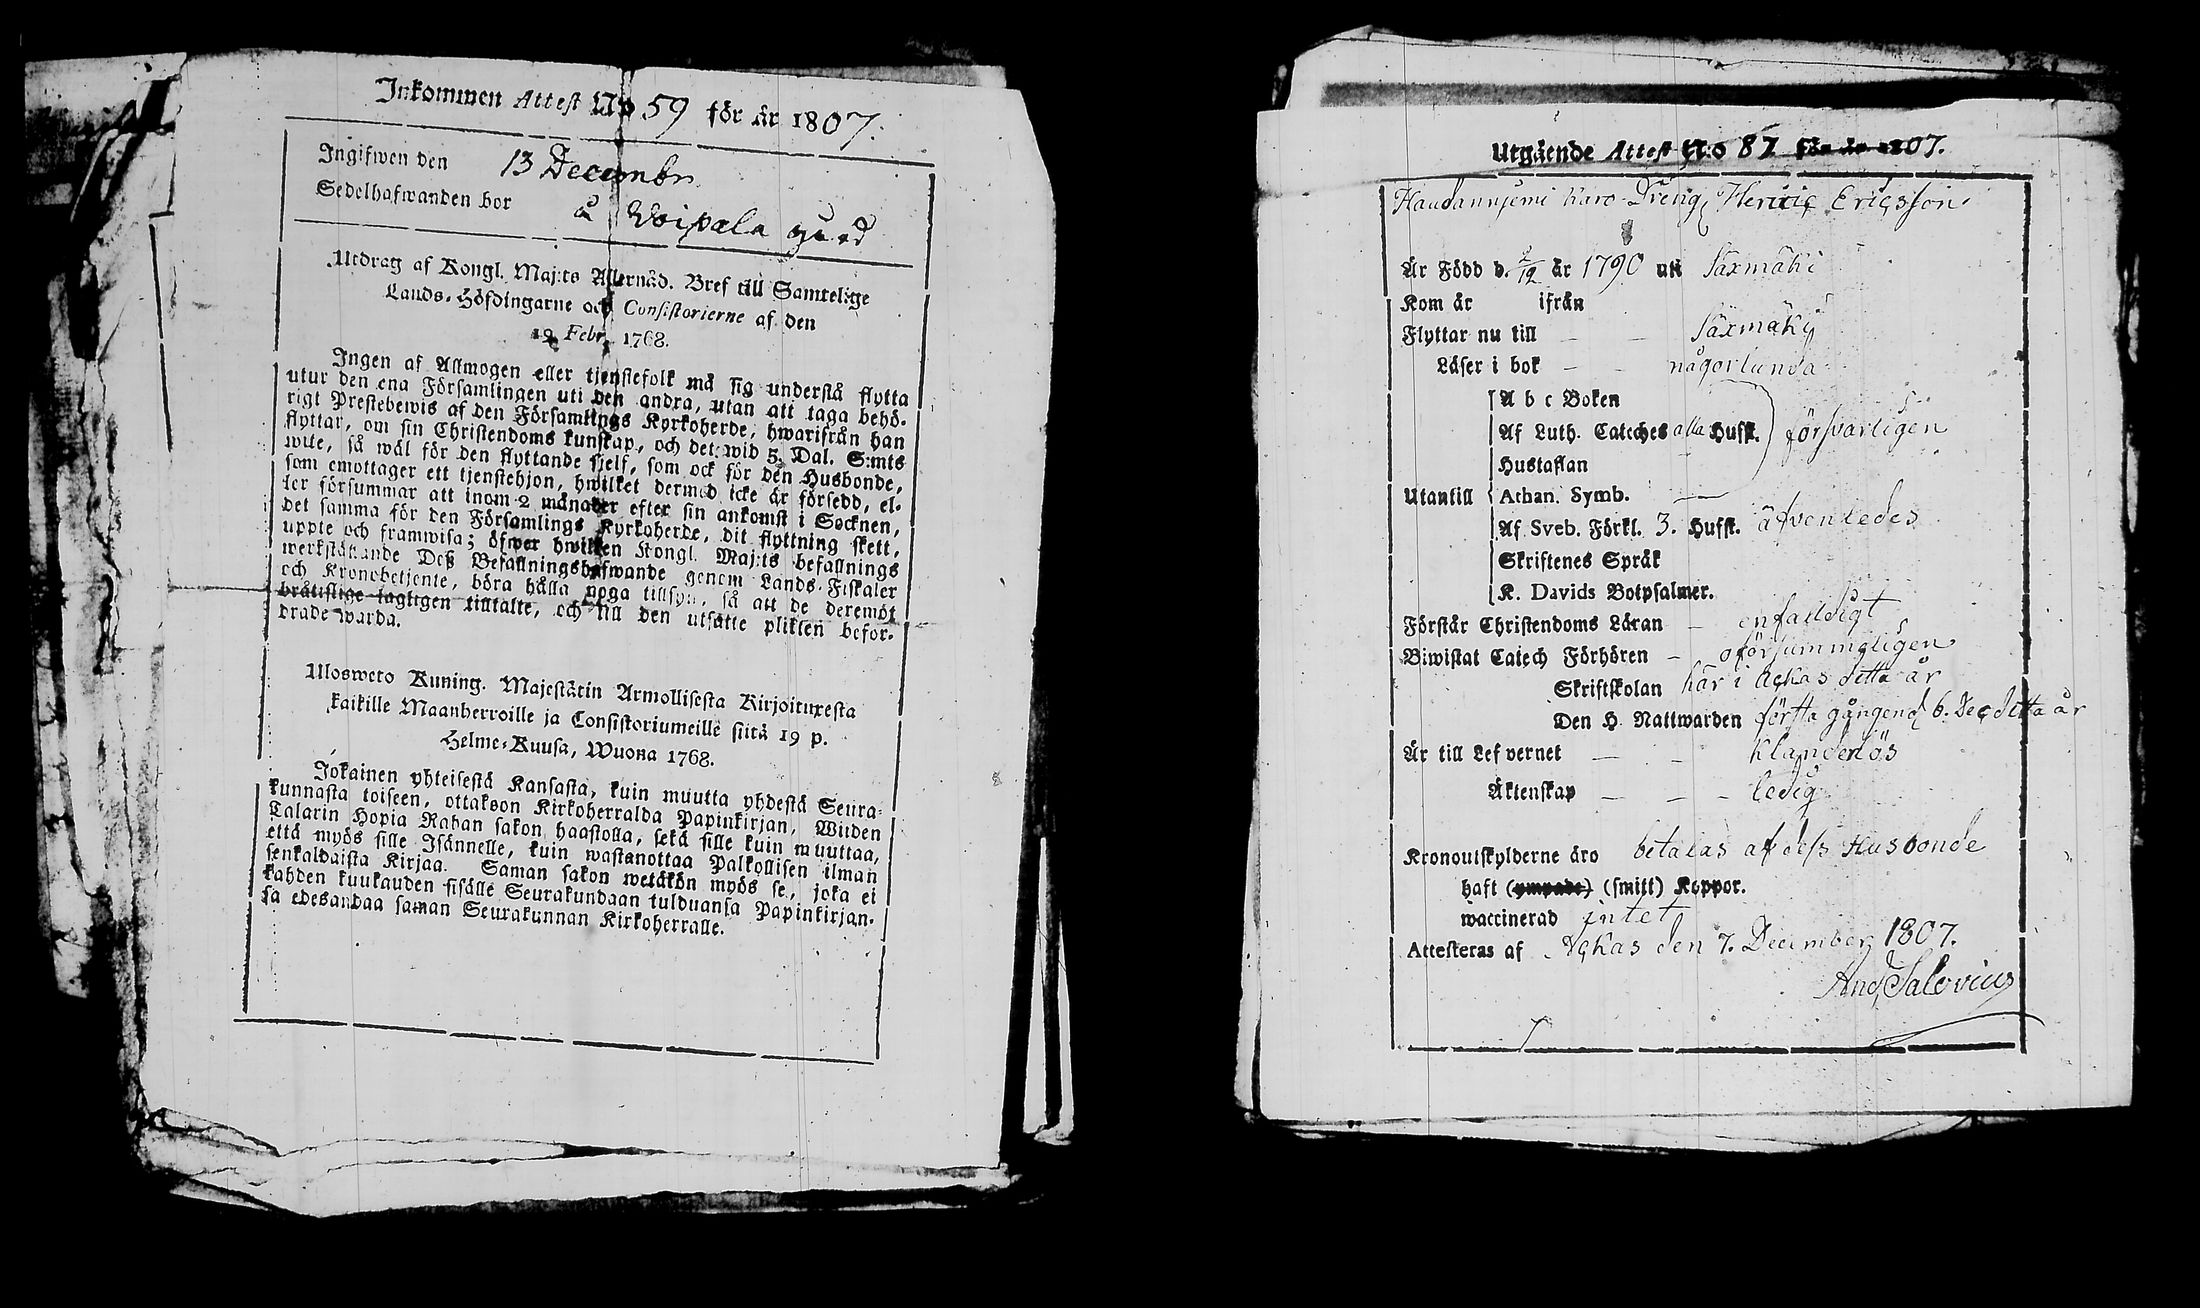 Inkommen Attest No 59 för år 1807.
Ingifwen den 13 Decembr
Sedelhafwanden bor å Voipala gård
Utdrag af Kongl. Maj:ts Allernåd. Bref till Samtelige
Lands-Höfdingarne och Consistorierne af den
19 Febr. 1768.
Ingen af Allmogen eller tjenstefolk må sig understå flytta
utur den ena Församlingen uti den andra, utan att taga behö-
rigt Prestebewis af den Församlings Kyrkoherde, hwarifrån han
flyttar, om sin Christendoms kunskap, och det wid 5 Dal. S:mts
wite, så wäl för den flyttande sjelf, som ock för den Husbonde,
som emottager ett tjenstehjon, hwilket dermed icke är försedd, el-
ler försummar att inom 2 månader efter sin ankomst i Socknen,
det samma för den Församlings Kyrkoherde, dit flyttning skett,
uppte och framwisa; öfwer hwilken Kongl. Maj:ts befallnings
werkställande Deß Befallningshafwande genom Lands-Fiskaler
och Kronobetjente, böra hålla noga tillsyn, så att de deremot
bråtslige lagligen tilltalte, och till den utsatte plikten befor-
drade warda.
Ulosweto Kuning. Majestätin Armollisesta Kirjoituxesta
kaikille Maanherroille ja Consistoriumeille siitä 19 p.
Helme-Kuusa, Wuona 1768.
Jokainen yhteisestä Kansasta, kuin muutta yhdestä Seura-
kunnasta toiseen, ottakoon Kirkoherralda Papinkirjan, Wiiden
Talarin Hopia Rahan sakon haastolla, sekä sille kuin muuttaa,
että myös sille Isännelle, kuin wastanottaa Palkollisen ilman
senkaldaista Kirjaa. Saman sakon wetäkön myös se, joka ei
kahden kuukauden sisälle Seurakundaan tulduansa Papinkirjan-
sa edesandaa saman Seurakunnan Kirkoherralle.
Utgående Attest N:o 87 för år 1807.
Haudannjemi Karo Dreng Henric Ericsson
Är Född d. 2/12 år 1790 uti Säxmäki
Kom år ifrån
Flyttar nu till — — Säxmäki
Läser i bok — — någorlunda
A b c Boken
Af Luth. Cateches alla Hufst. försvarligen
Hustaflan
Utantill Athan. Symb. —
Af Sveb. Förkl. 3. Hufst. äfvenledes
Skriftenes Språk
K. Davids Botpsalmer.
Förstår Christendoms Läran — enfaldigt
Biwistat Catech Förhören — oförsummeligen
Skriftskolan här i Ackas detta år
Den H. Nattwarden första gången d. 6. Dec detta år
Är till Lefvernet — — klanderlös
Äktenskap — — — ledig
Kronoutskylderne äro betalas af dess Husbonde
haft (ympade) (smitt) Koppor.
waccinerad intet
Attesteras af Ackas den 7. December 1807.
And. Salovius